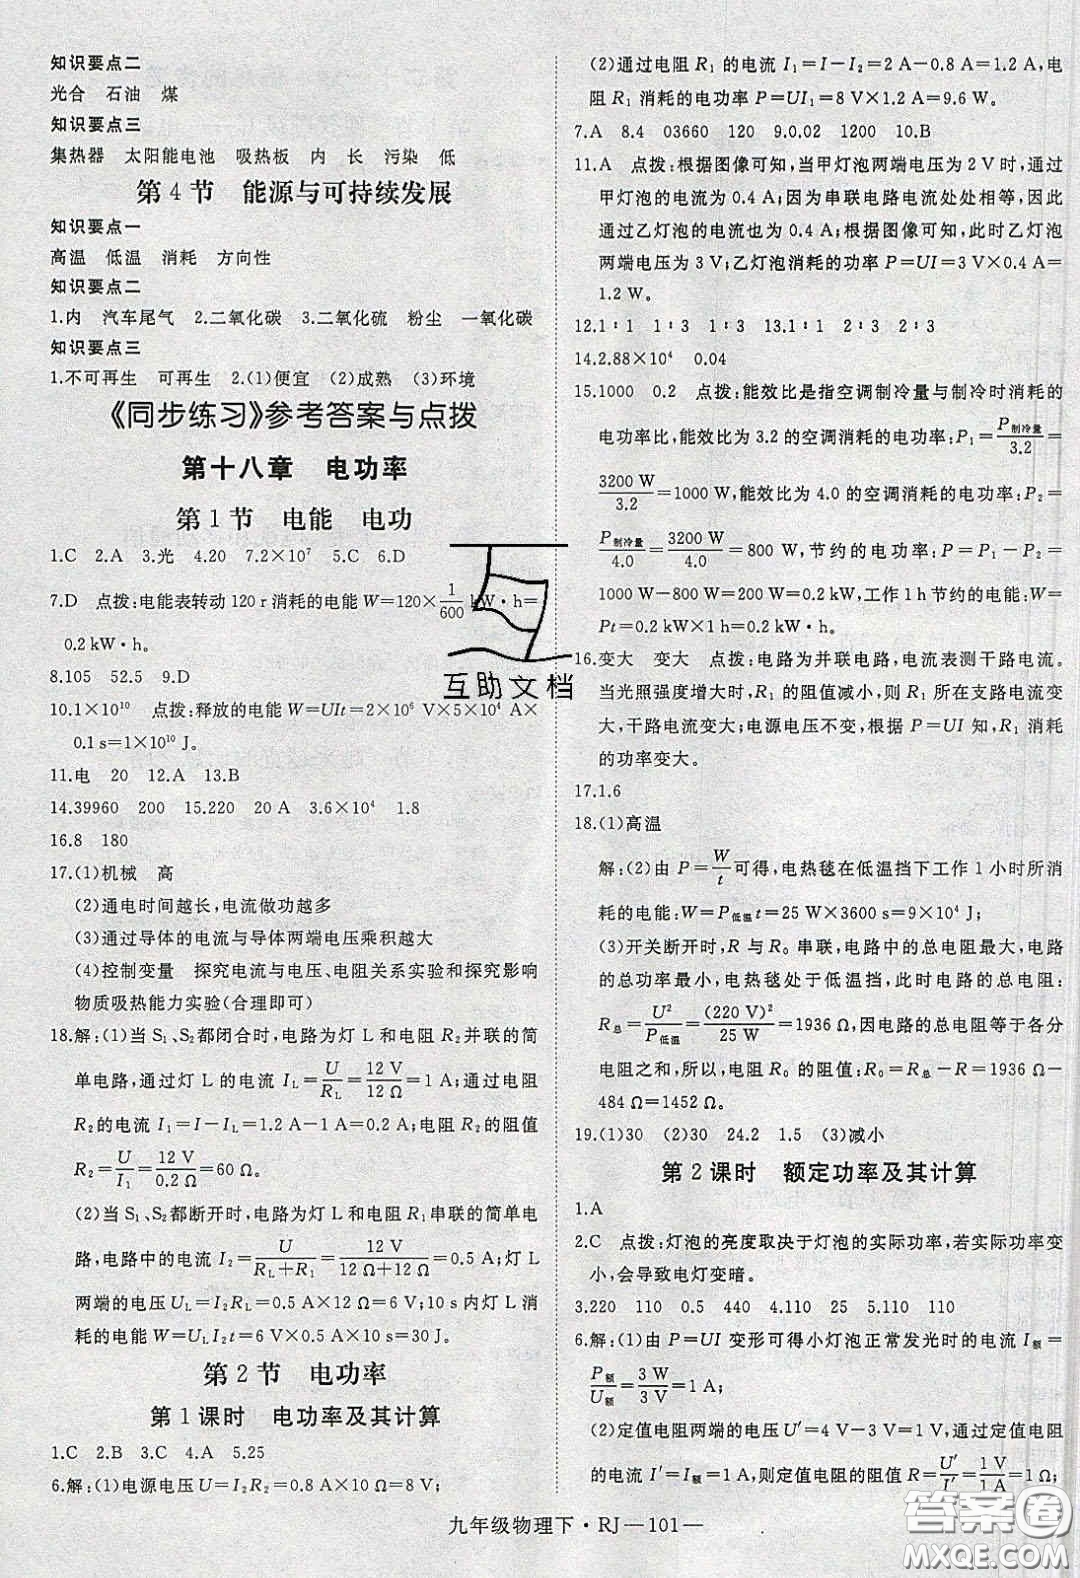 知识要点二
光合 石油 煤
知识要点三
集热器 太阳能电池 吸热板 内 长 污染 低
第4节 能源与可持续发展
知识要点一
高温 低温 消耗 方向性
知识要点二
1.内 汽车尾气 2.二氧化碳 3.二氧化硫 粉尘 一氧化碳
知识要点三
1.不可再生 可再生 2.(1)便宜 (2)成熟 (3)环境
《同步练习》参考答案与点拨
第十八章 电功率
第1节 电能 电功
1.C 2.A 3.光 4.20 7.2×10⁷ 5.C 6.D
7.D 点拨:电能表转动120 r消耗的电能W=120×1/600 kW·h=
0.2 kW·h。
8.105 52.5 9.D
10.1×10¹⁰ 点拨:释放的电能W=UIt=2×10⁶ V×5×10⁴ A×
0.1 s=1×10¹⁰ J。
11.电 20 12.A 13.B
14.39960 200 15.220 20 A 3.6×10⁴ 1.8
16.8 180
17.(1)机械 高
(2)通电时间越长,电流做功越多
(3)通过导体的电流与导体两端电压乘积越大
(4)控制变量 探究电流与电压、电阻关系实验和探究影响
物质吸热能力实验(合理即可)
18.解:(1)当S₁、S₂都闭合时,电路为灯L和电阻R₂并联的简
单电路,通过灯L的电流I_L=U/R_L=12 V/12 Ω=1 A;通过电阻
R₂的电流I₁=I-I_L=1.2 A-1 A=0.2 A;电阻R₂的阻值
R₂=U/I₁=12 V/0.2 Ω=60 Ω。
(2)当S₁、S₂都断开时,电路为灯L和电阻R₁串联的简单电
路,电路中的电流I₂=U/(R_L+R₁)=12 V/(12 Ω+12 Ω)=0.5 A;灯L
两端的电压U_L=I₂R_L=0.5 A×12 Ω=6 V;10 s内灯L消
耗的电能W=U_L I₂t=6 V×0.5 A×10 s=30 J。
第2节 电功率
第1课时 电功率及其计算
1.C 2.B 3.C 4.A 5.25
6.解:(1)电源电压U=I₂R₂=0.8 A×10 Ω=8 V;
(2)通过电阻R₁的电流I₁=I-I₂=2 A-0.8 A=1.2 A,电
阻R₁消耗的电功率P=UI₁=8 V×1.2 A=9.6 W。
7.A 8.4 03660 120 9.0.02 1200 10.B
11.A 点拨:根据图像可知,当甲灯泡两端电压为2 V时,通过
甲灯泡的电流为0.4 A;因为串联电路电流处处相等,因此
通过乙灯泡的电流也为0.4 A;根据图像可知,此时乙灯泡
两端电压为3 V;乙灯泡消耗的功率P=UI=3 V×0.4 A=
1.2 W。
12.1∶1 1∶3 1∶3 13.1∶1 2∶3 2∶3
14.2.88×10⁴ 0.04
15.1000 0.2 点拨:能效比是指空调制冷量与制冷时消耗的
电功率比,能效比为3.2的空调消耗的电功率:P₁=P制冷量/3.2=
3200 W/3.2=1000 W,能效比为4.0的空调消耗的电功率:P₂=
P制冷量/4.0=3200 W/4.0=800 W,节约的电功率:P=P₁-P₂=
1000 W-800 W=200 W=0.2 kW,工作1 h节约的电能:W=
Pt=0.2 kW×1 h=0.2 kW·h。
16.变大 变大 点拨:电路为并联电路,电流表测干路电流。
当光照强度增大时,R₁的阻值减小,则R₁所在支路电流变
大,干路电流变大;电源电压不变,根据P=UI知,R₁消耗
的功率变大。
17.1.6
18.(1)高温
解:(2)由P=W/t可得,电热毯在低温挡下工作1小时所消
耗的电能:W=P低温t=25 W×3600 s=9×10⁴ J;
(3)开关断开时,R与R₀串联,电路中的总电阻最大,电路
的总功率最小,电热毯处于低温挡,此时电路的总电阻:
R总=U²/P低温=(220 V)²/25 W=1936 Ω,因电路的总电阻等于各分
电阻之和,所以,电阻R₀的阻值:R₀=R总-R=1936 Ω-
484 Ω=1452 Ω。
19.(1)30 (2)30 24.2 1.5 (3)减小
第2课时 额定功率及其计算
1.A
2.C 点拨:灯泡的亮度取决于灯泡的实际功率,若实际功率变
小,会导致电灯变暗。
3.220 110 0.5 440 4.110 25 5.110 110
6.解:(1)由P=UI变形可得小灯泡正常发光时的电流I额=
P额/U额=3 W/3 V=1 A;
(2)定值电阻两端的电压U′=4 V-3 V=1 V;通过定值电阻
的电流I′=I额=1 A,则定值电阻的阻值R=U′/I′=1 V/1 A=1 Ω;
九年级物理下·RJ—101—
互助文档
答案圈
MXQE.COM